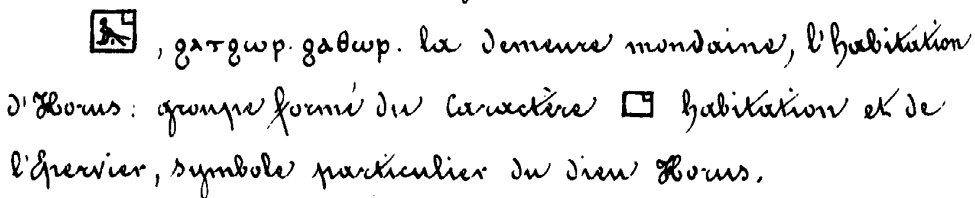 𓉡, ϩⲁⲧϩⲱⲣ. ϩⲁⲑⲱⲣ. la demeure mondaine, l'habitation
d'Horus: groupe formé du caractère 𓉗 habitation et de
l'épervier, symbole particulier du dieu Horus.